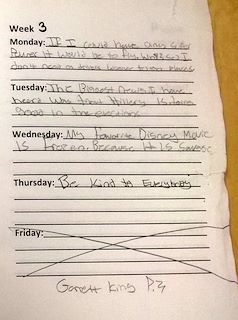 Week 3
Monday: If I could have any super
Power it would be to fly. so I
don't need a
Tuesday: The Biggest News I have
heard Was that Hillery is
good in the elections
Wednesday: My favorite Disney Movie
Is frozen. Because It Is
Thursday: Be kind to Everybody
Friday:
Garrett King P.2